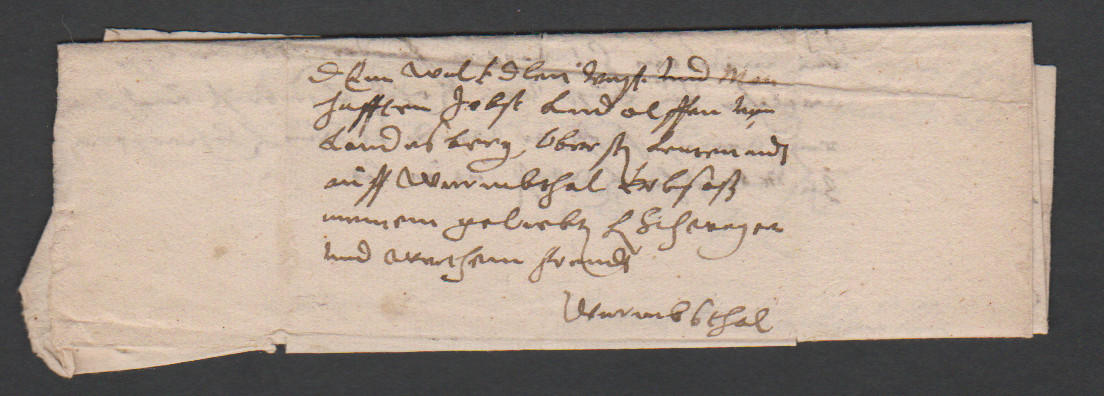 Dem WolEdlen Vest und Man
hafften Jobst Ludolffen von
Landesberg, Obersten Leutenandt
auff Wurmbthal Erbsaß
meinem geliebten H Schwager
und werthem freundt
Wurmbsthal